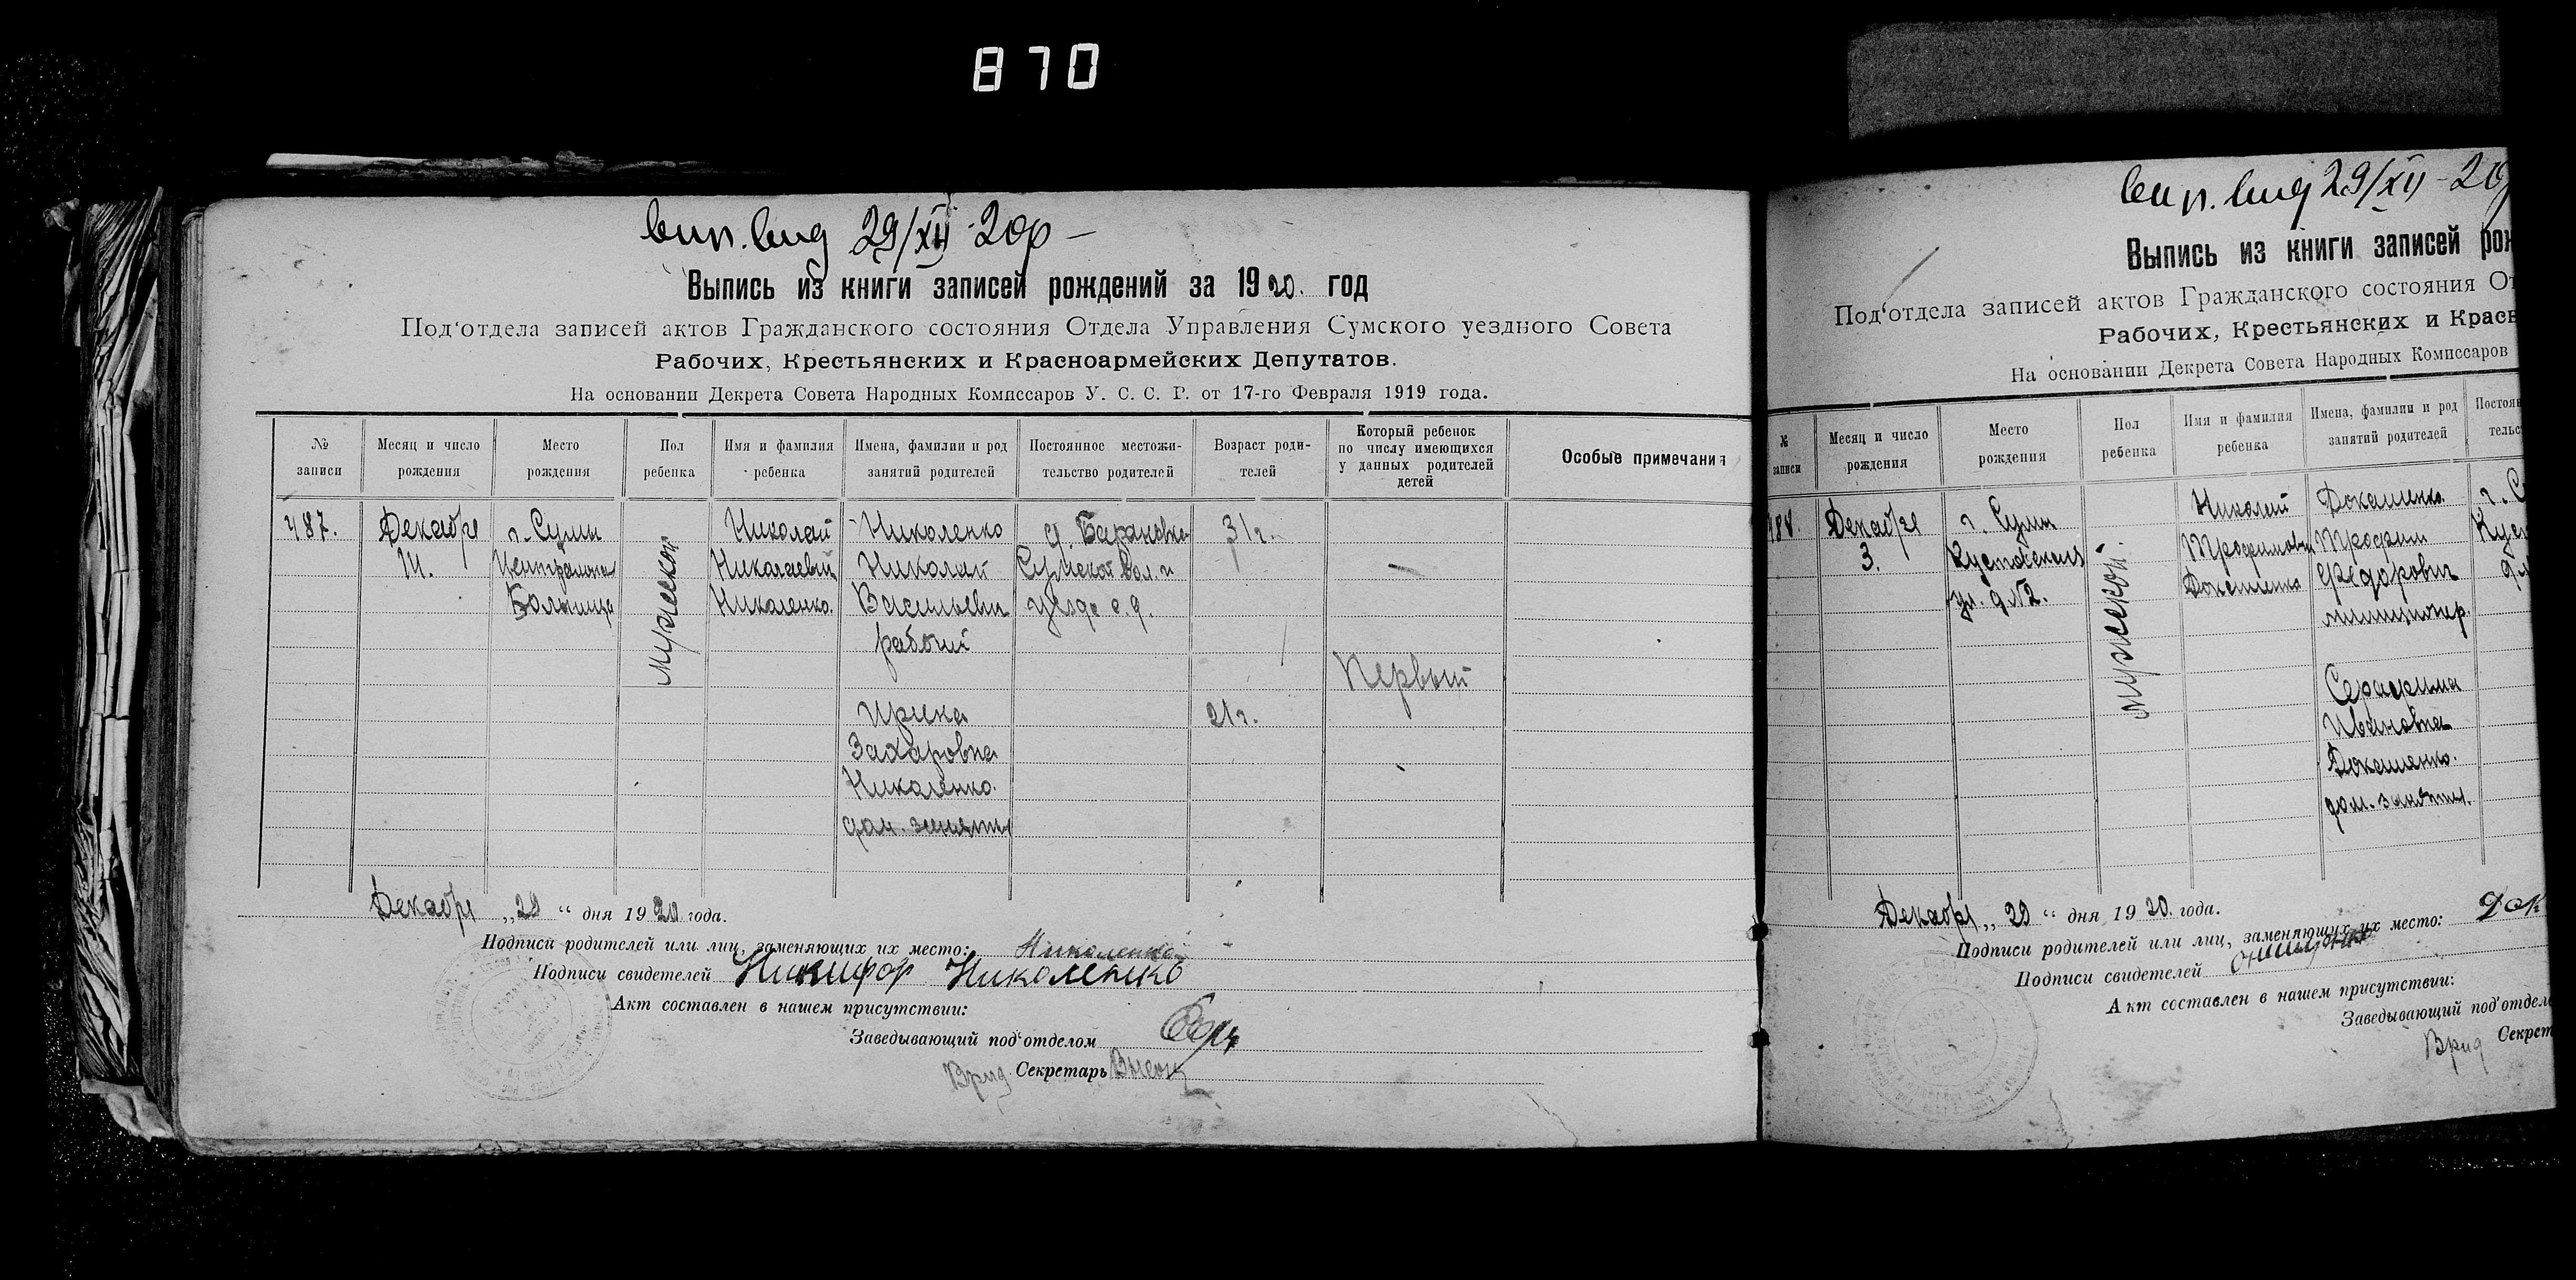 870
29/XII 20р —
Выпись из книги записей рождений за 1920. год
Под'отдела записей актов Гражданского состояния Отдела Управления Сумского уездного Совета
Рабочих, Крестьянских и Красноармейских Депутатов.
На основании Декрета Совета Народных Комиссаров У. С. С. Р. от 17-го Февраля 1919 года.
№ записи
Месяц и число рождения
Место рождения
Пол ребенка
Имя и фамилия ребенка
Имена, фамилии и род занятий родителей
Постоянное местожительство родителей
Возраст родителей
Который ребенок по числу имеющихся у данных родителей детей
Особые примечания
487.
Декабре
г. Сумы
Больница
Мужской
Николай
Николаевич
Николенко.
Николенко
Николай
Васильевич
рабочий
д. Барановка
Сумской вол. и
уезда с. д.
31 г.
Первый
Ирина
Захаровна
Николенко.
дом. занятия
21 г.
Декабре „29 “ дня 1920 года.
Подписи родителей или лиц, заменяющих их место: Николенко
Подписи свидетелей Никифор Николенко
Акт составлен в нашем присутствии:
Заведывающий под'отделом
Врид Секретарь
29/XII - 20р
Выпись из книги записей рож
Под'отдела записей актов Гражданского состояния От
Рабочих, Крестьянских и Красн
На основании Декрета Совета Народных Комиссаров
№ записи
Месяц и число рождения
Место рождения
Пол ребенка
Имя и фамилия ребенка
Имена, фамилии и род занятий родителей
Постоян
тельст
488.
Декабре
3.
г. Сумы
ул. д. №2.
Мужской.
Николай
Трофимович
Докашенко
Докашенко
Трофим
Федорович
милиционер.
г. С
Серафима
Ивановна
Докашенко.
дом. занятия.
Декабре „ 29 “ дня 1920. года.
Подписи родителей или лиц, заменяющих их место: Док
Подписи свидетелей
Акт составлен в нашем присутствии:
Заведывающий под'отдело
Врид Секрет